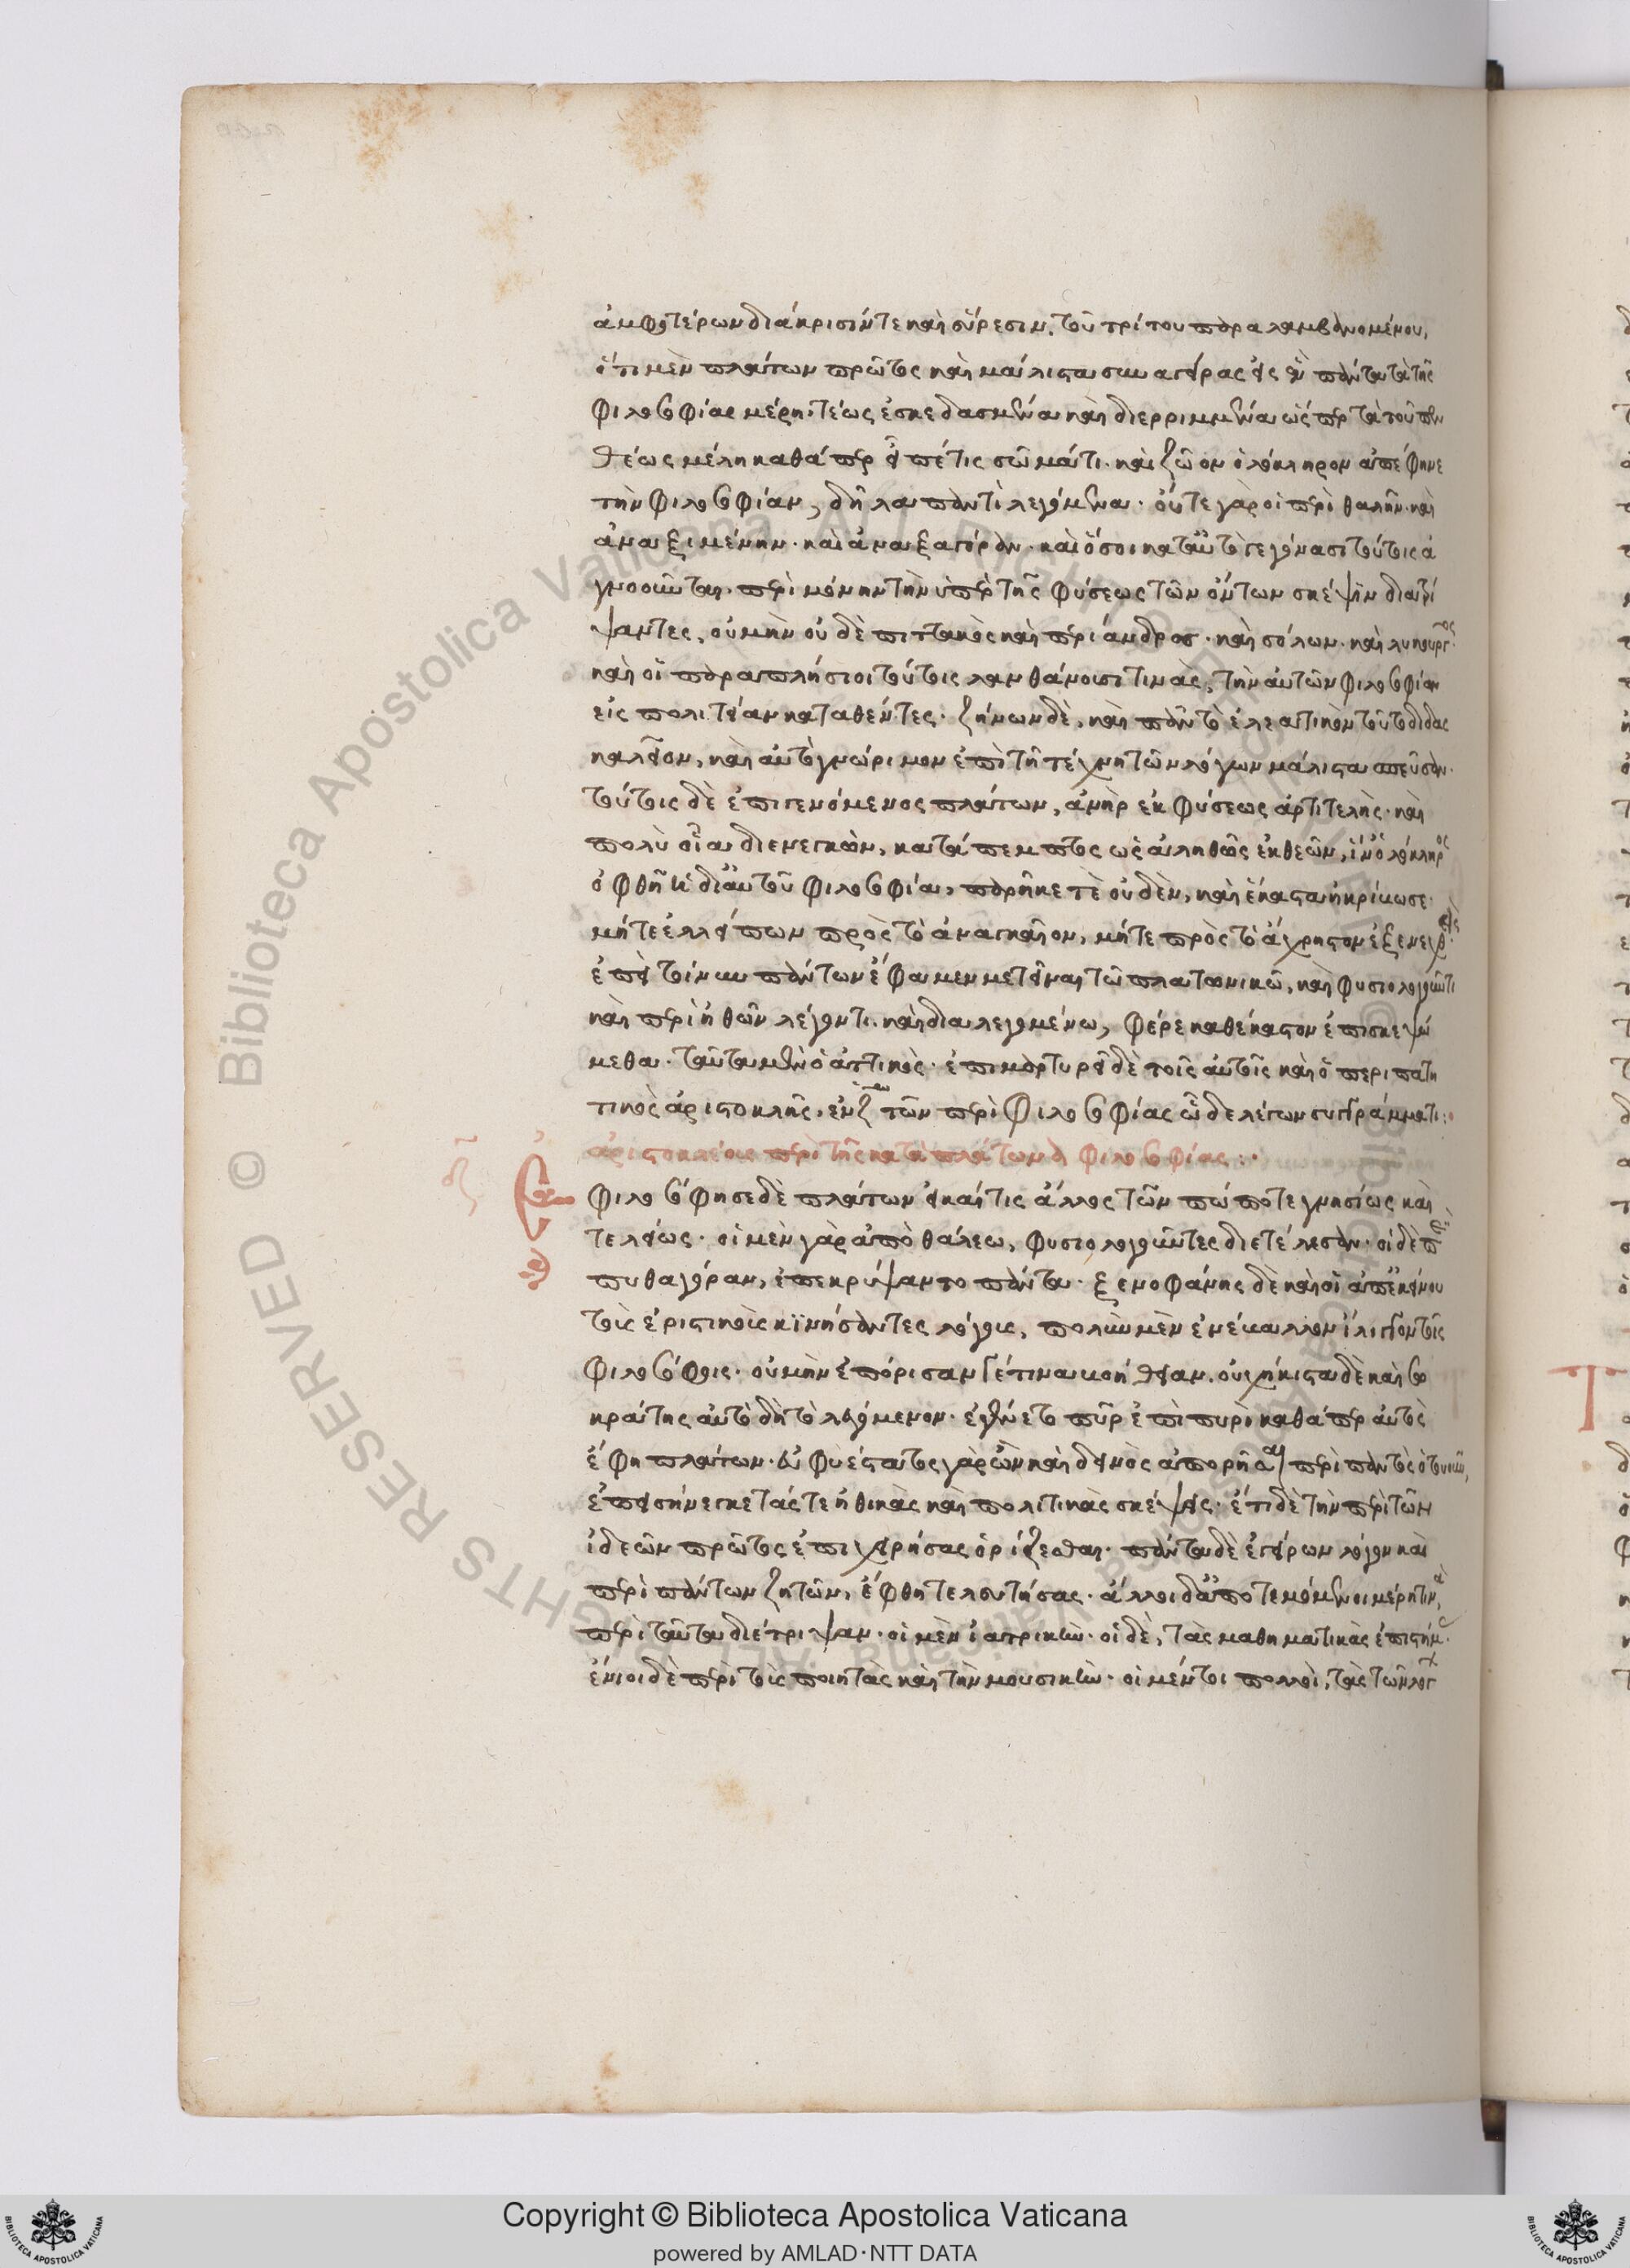 ἀμφοτέρων διάκρισίν τε καὶ εὕρεσιν. τοῦ τρίτου παραλαμβανομένου,
ὅτι μὲν πλάτων πρῶτος καὶ μάλιστα συναγείρας εἰς ἓν πάντα τὰ τῆς
φιλοσοφίας μέρη. τέως ἐσκεδασμένα καὶ διερριμμένα ὥσπερ τὰ τοῦ πεν
θέως μέλη καθάπερ εἶπέ τις σῶμά τι. καὶ ζῶον ὁλόκληρον ἀπέφηνε
τὴν φιλοσοφίαν, δῆλα παντὶ λεγόμενα. οὔτε γὰρ οἱ περὶ θαλῆν. καὶ
ἀναξιμένην. καὶ ἀναξαγόραν. καὶ ὅσοι κατ' αὐτὸ γεγόνασι τούτοις ἀ
γνοοῦνται. περὶ μόνην τὴν ὑπὲρ τῆς φύσεως τῶν ὄντων σκέψιν διατρί
ψαντες, οὐ μὴν οὐδὲ πιττακὸς καὶ περίανδρος. καὶ σόλων. καὶ λυκοῦργος.
καὶ οἱ παραπλήσιοι τούτοις λανθάνουσί τινας, τὴν αὐτῶν φιλοσοφίαν
εἰς πολιτείαν καταθέντες. ζήνων δὲ, καὶ πᾶν τὸ ἐλεατικὸν τοῦτο διδας
καλεῖον, καὶ αὐτὸ γνώριμον ἐπὶ τῇ τέχνῃ τῶν λόγων μάλιστα σπεῦσαν.
τούτοις δὲ ἐπιγενόμενος πλάτων, ἀνὴρ ἐκ φύσεως ἀρτιτελὴς. καὶ
πολὺ οἷα διενεγκὼν, κατάπεμπτος ὡς ἀληθῶς ἐκ θεῶν, ἵν' ὁλόκληρος
ὀφθῇ ἡ δι' αὐτοῦ φιλοσοφία, παρῆκέ τε οὐδὲν, καὶ ἕκαστα ἠκρίβωσε.
μήτε ἐλλείπων πρὸς τὸ ἀναγκαῖον, μήτε πρὸς τὸ ἄχρηστον ἐξενεχθείς.
ἐπεὶ τοίνυν πάντων ἔφαμεν μετεῖναι τῷ πλατωνικῷ, καὶ φυσιολογοῦντι
καὶ περὶ ἠθῶν λέγοντι. καὶ διαλεγομένω, φέρε καθ' ἕκαστον ἐπισκεψώ
μεθα. ταῦτα μὲν ὁ ἀττικὸς. ἐπιμαρτυρεῖ δὲ τοῖς αὐτοῖς καὶ ὁ περιπατη
τικὸς ἀριστοκλῆς. ἐν ζ τῶν περὶ φιλοσοφίας ὧδε λέγων συγγράμματι:
ἀριστοκλέους περὶ τῆς κατὰ πλάτωνα φιλοσοφίας:
φιλοσόφησε δὲ πλάτων εἰ καί τις ἄλλος τῶν πώποτε γνησίως καὶ
τελείως. οἱ μὲν γὰρ ἀπὸ θάλεω, φυσιολογοῦντες διετέλεσαν. οἱ δὲ περὶ
πυθαγόραν, ἐπεκρύψαντο πάντα. ξενοφάνης δὲ καὶ οἱ ἀπ' ἐκείνου
τοὺς ἐριστικοὺς κινήσαντες λόγους, πολὺν μὲν ἐνέβαλλον ἴλιγγον τοῖς
φιλοσόφοις. οὐ μὴν ἐπόρισάν γέ τινα βοήθειαν. οὐχ ἥκιστα δὲ καὶ σω
κράτης αὐτὸ δὴ τὸ λεγόμενον. ἐγένετο πῦρ ἐπὶ πυρὶ καθάπερ αὐτὸς
ἔφη πλάτων. εὐφυέστατος γὰρ ὢν καὶ δεινὸς ἀπορῆσαι περὶ παντὸς ὁτουοῦν,
ἐπεισήνεγκε τάς τε ἠθικὰς καὶ πολιτικὰς σκέψεις. ἔτι δὲ τὴν περὶ τῶν
ἰδεῶν πρῶτος ἐπιχειρήσας ὁρίζεσθαι. πάντα δὲ ἐγείρων λόγον καὶ
περὶ πάντων ζητῶν, ἔφθη τελευτήσας. ἄλλοι δ' ἀποτεμόμενοι μέρη τινὰ,
περὶ ταῦτα διέτριψαν. οἱ μὲν ἰατρικὴν. οἱ δὲ, τὰς μαθηματικὰς ἐπιστήμας.
ἔνιοι δὲ περὶ τοὺς ποιητὰς καὶ τὴν μουσικὴν. οἱ μέντοι πολλοὶ, τὰς τῶν λογ
Copyright © Biblioteca Apostolica Vaticana
powered by AMLAD·NTT DATA